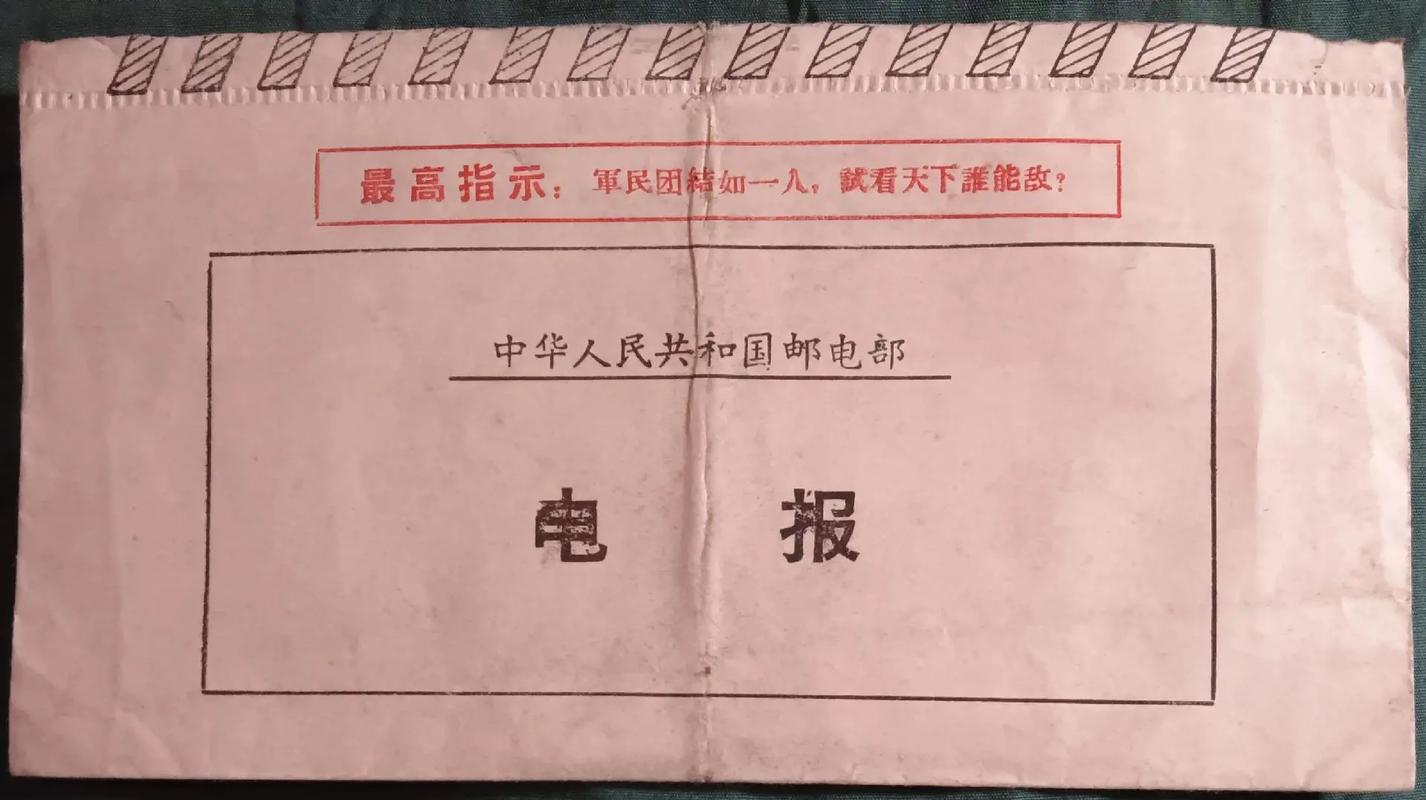 最高指示：軍民团結如一人，試看天下誰能敌？
中华人民共和国邮电部
电报